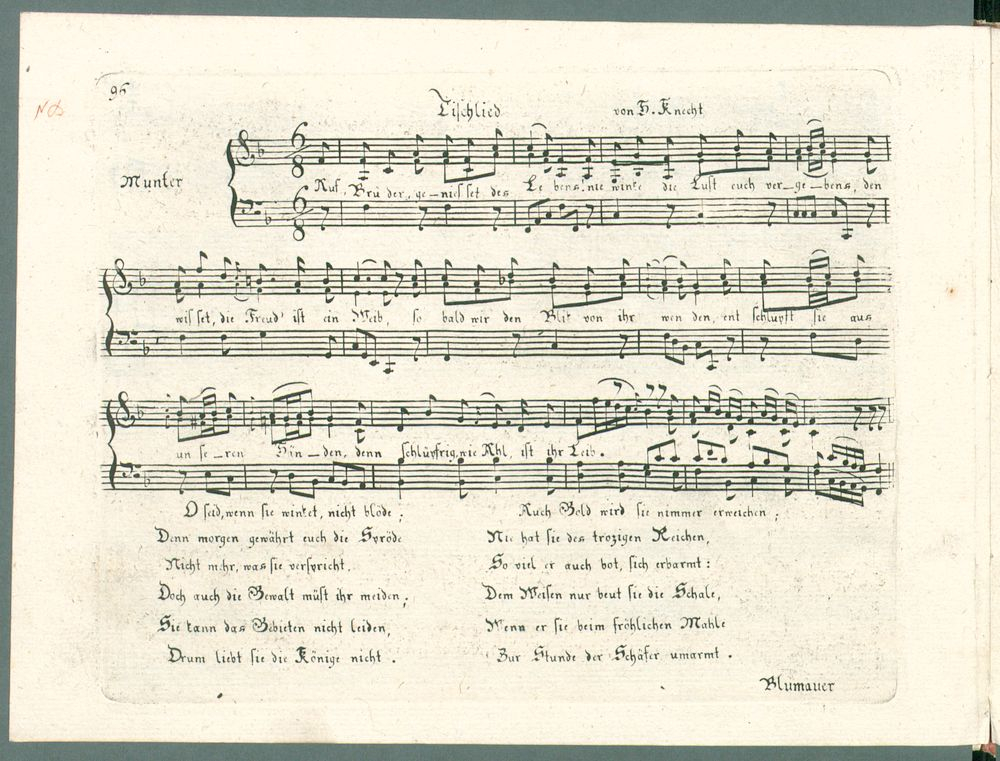 96
NB
Tischlied von H. Knecht
Munter
6 8
6 8
Auf, Brü der, ge-nies set des Le bens, nie winke die Lust euch ver-ge-bens, den
wis set, die Freud' ist ein Weib, so bald wir den Blik von ihr wen den, ent schlüpft sie aus
un se-ren Hän-den, denn schlüpfrig, wie Ahl, ist ihr Leib.
O seid, wenn sie winket, nicht blöde;
Denn morgen gewährt euch die Spröde
Nicht mehr, was sie verspricht.
Doch auch die Gewalt müßt ihr meiden;
Sie kann das Gebieten nicht leiden,
Drum liebt sie die Könige nicht.
Auch Gold wird sie nimmer erweichen;
Nie hat sie des trozigen Reichen,
So viel er auch bot, sich erbarmt:
Dem Weisen nur beut sie die Schale,
Wenn er sie beim fröhlichen Mahle
Zur Stunde der Schäfer umarmt.
Blumauer